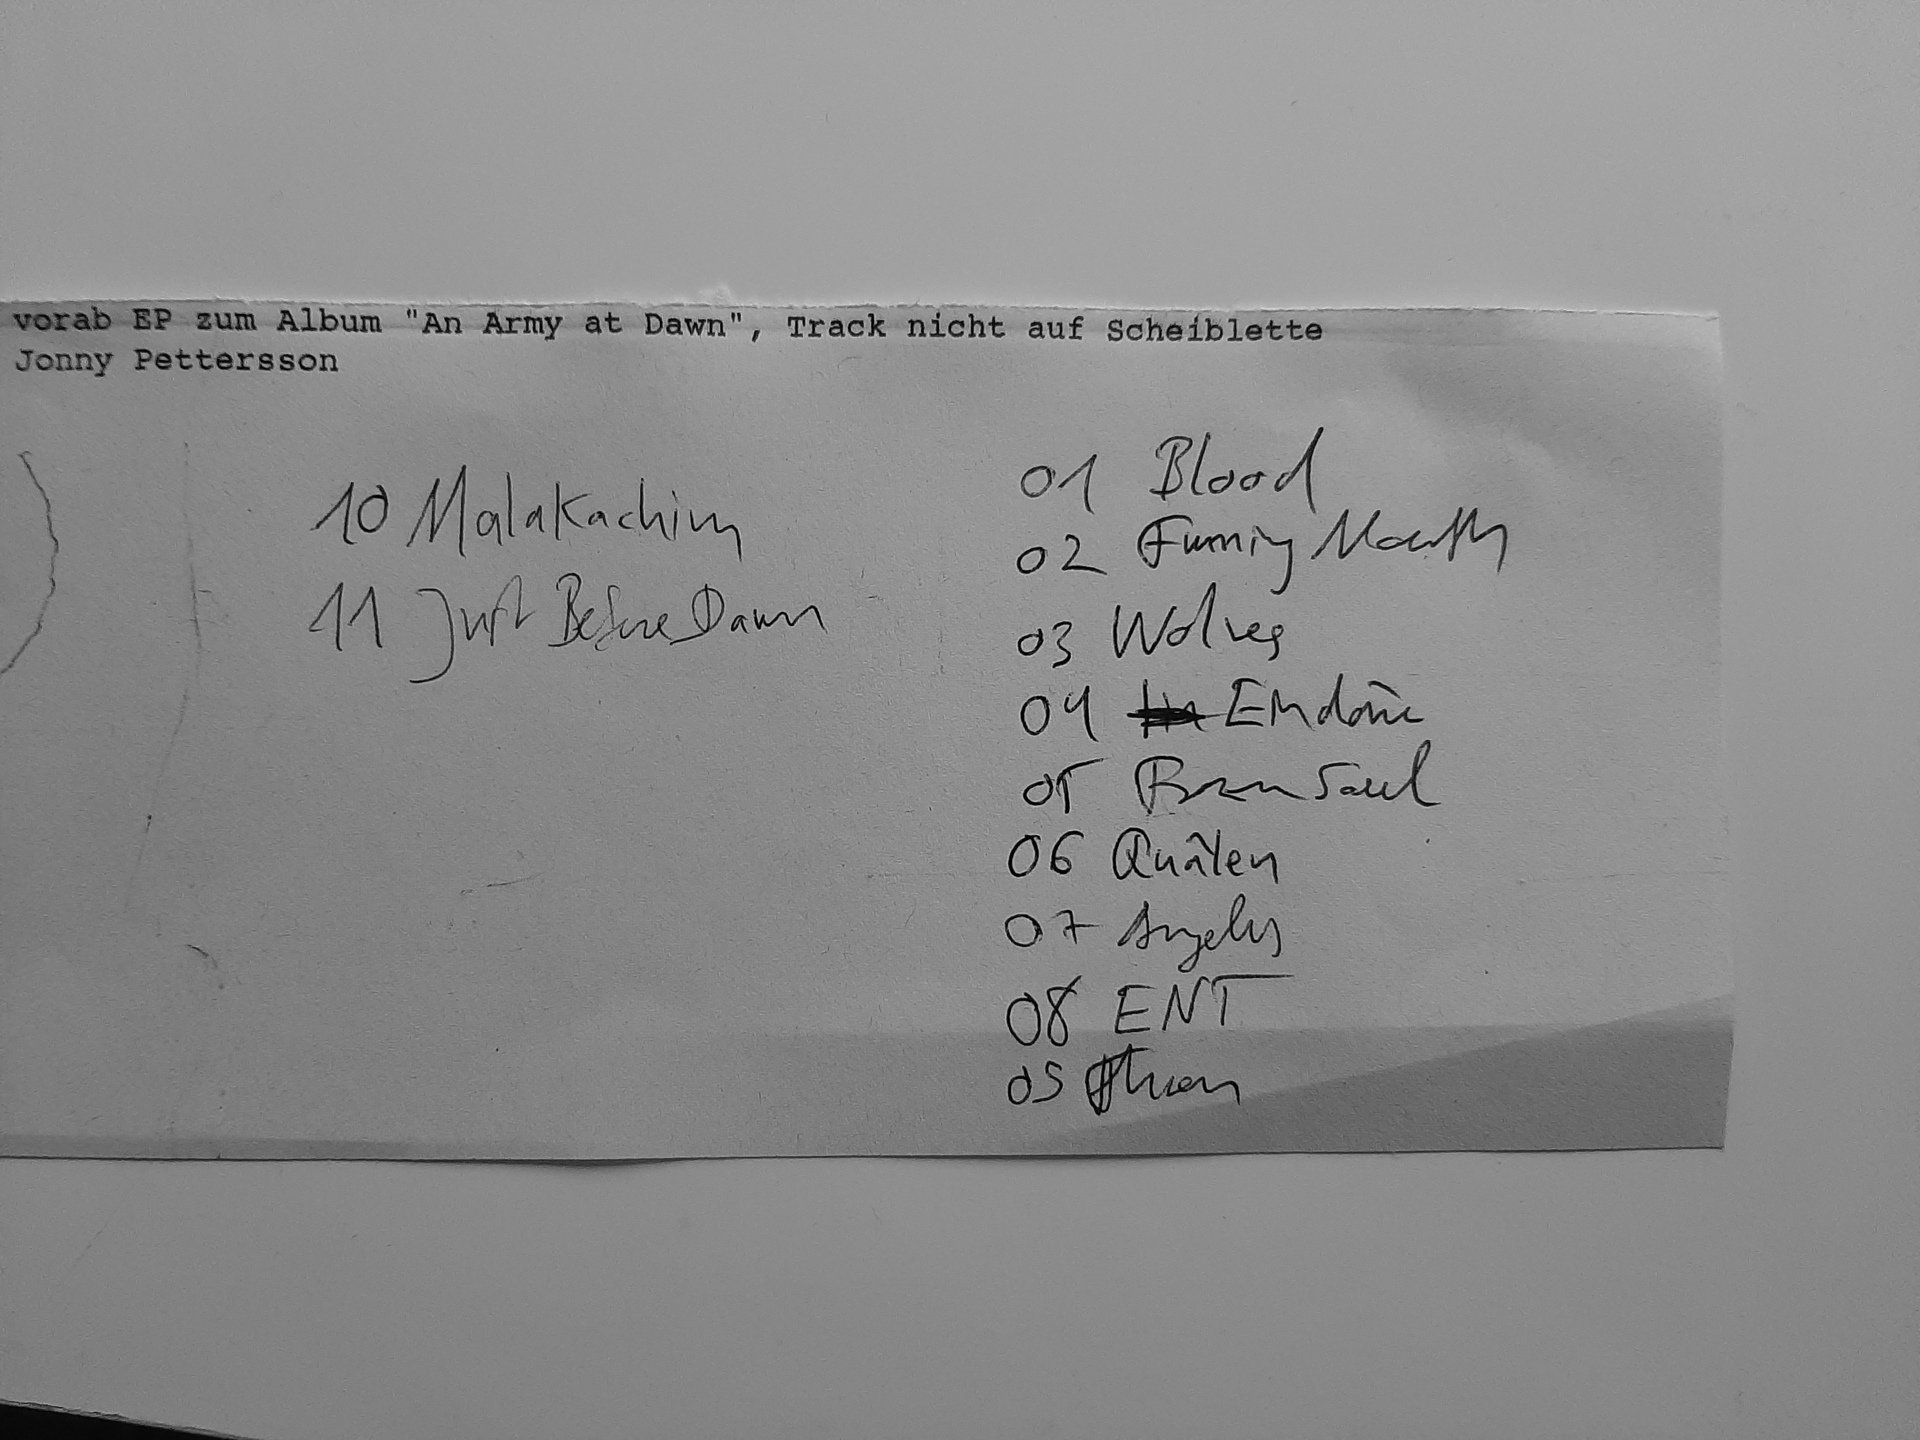 vorab EP zum Album "An Army at Dawn", Track nicht auf Scheiblette
Jonny Pettersson
01 Blood
02 Fuming Mouth
03 Wolves
04
05
06 Quälen
07 Angelus
08 ENT
09
10 Malakachim
11 Just Before Dawn